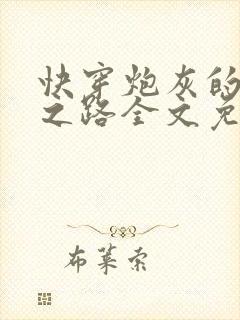 快穿炮灰的
之路全文免
布莱索